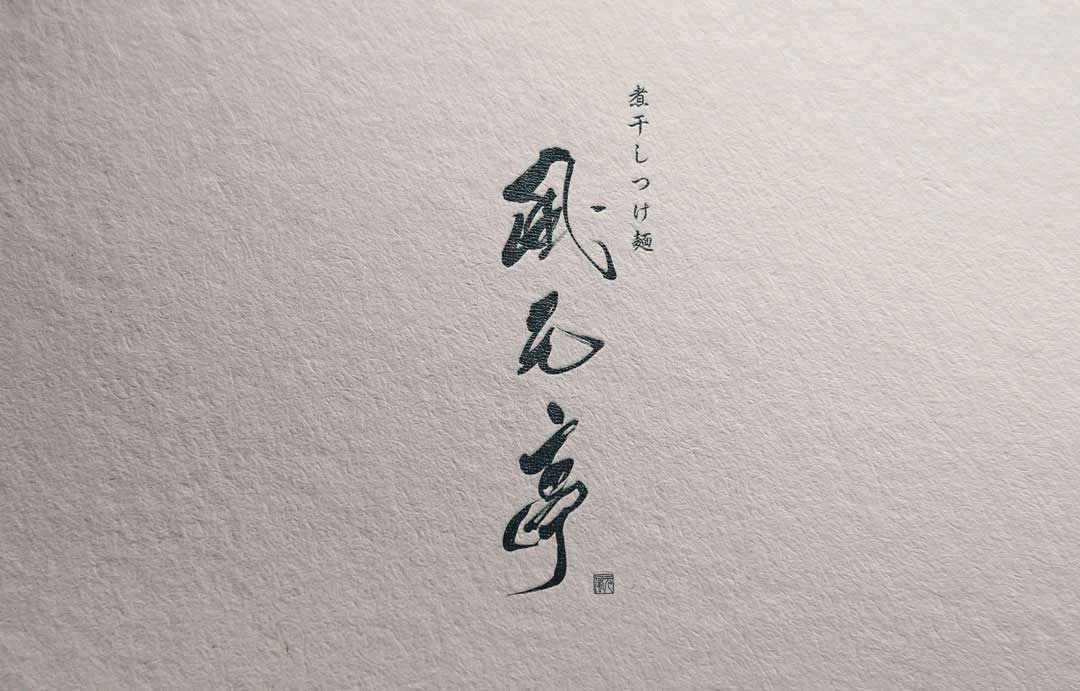 煮干しつけ麺
風元亭